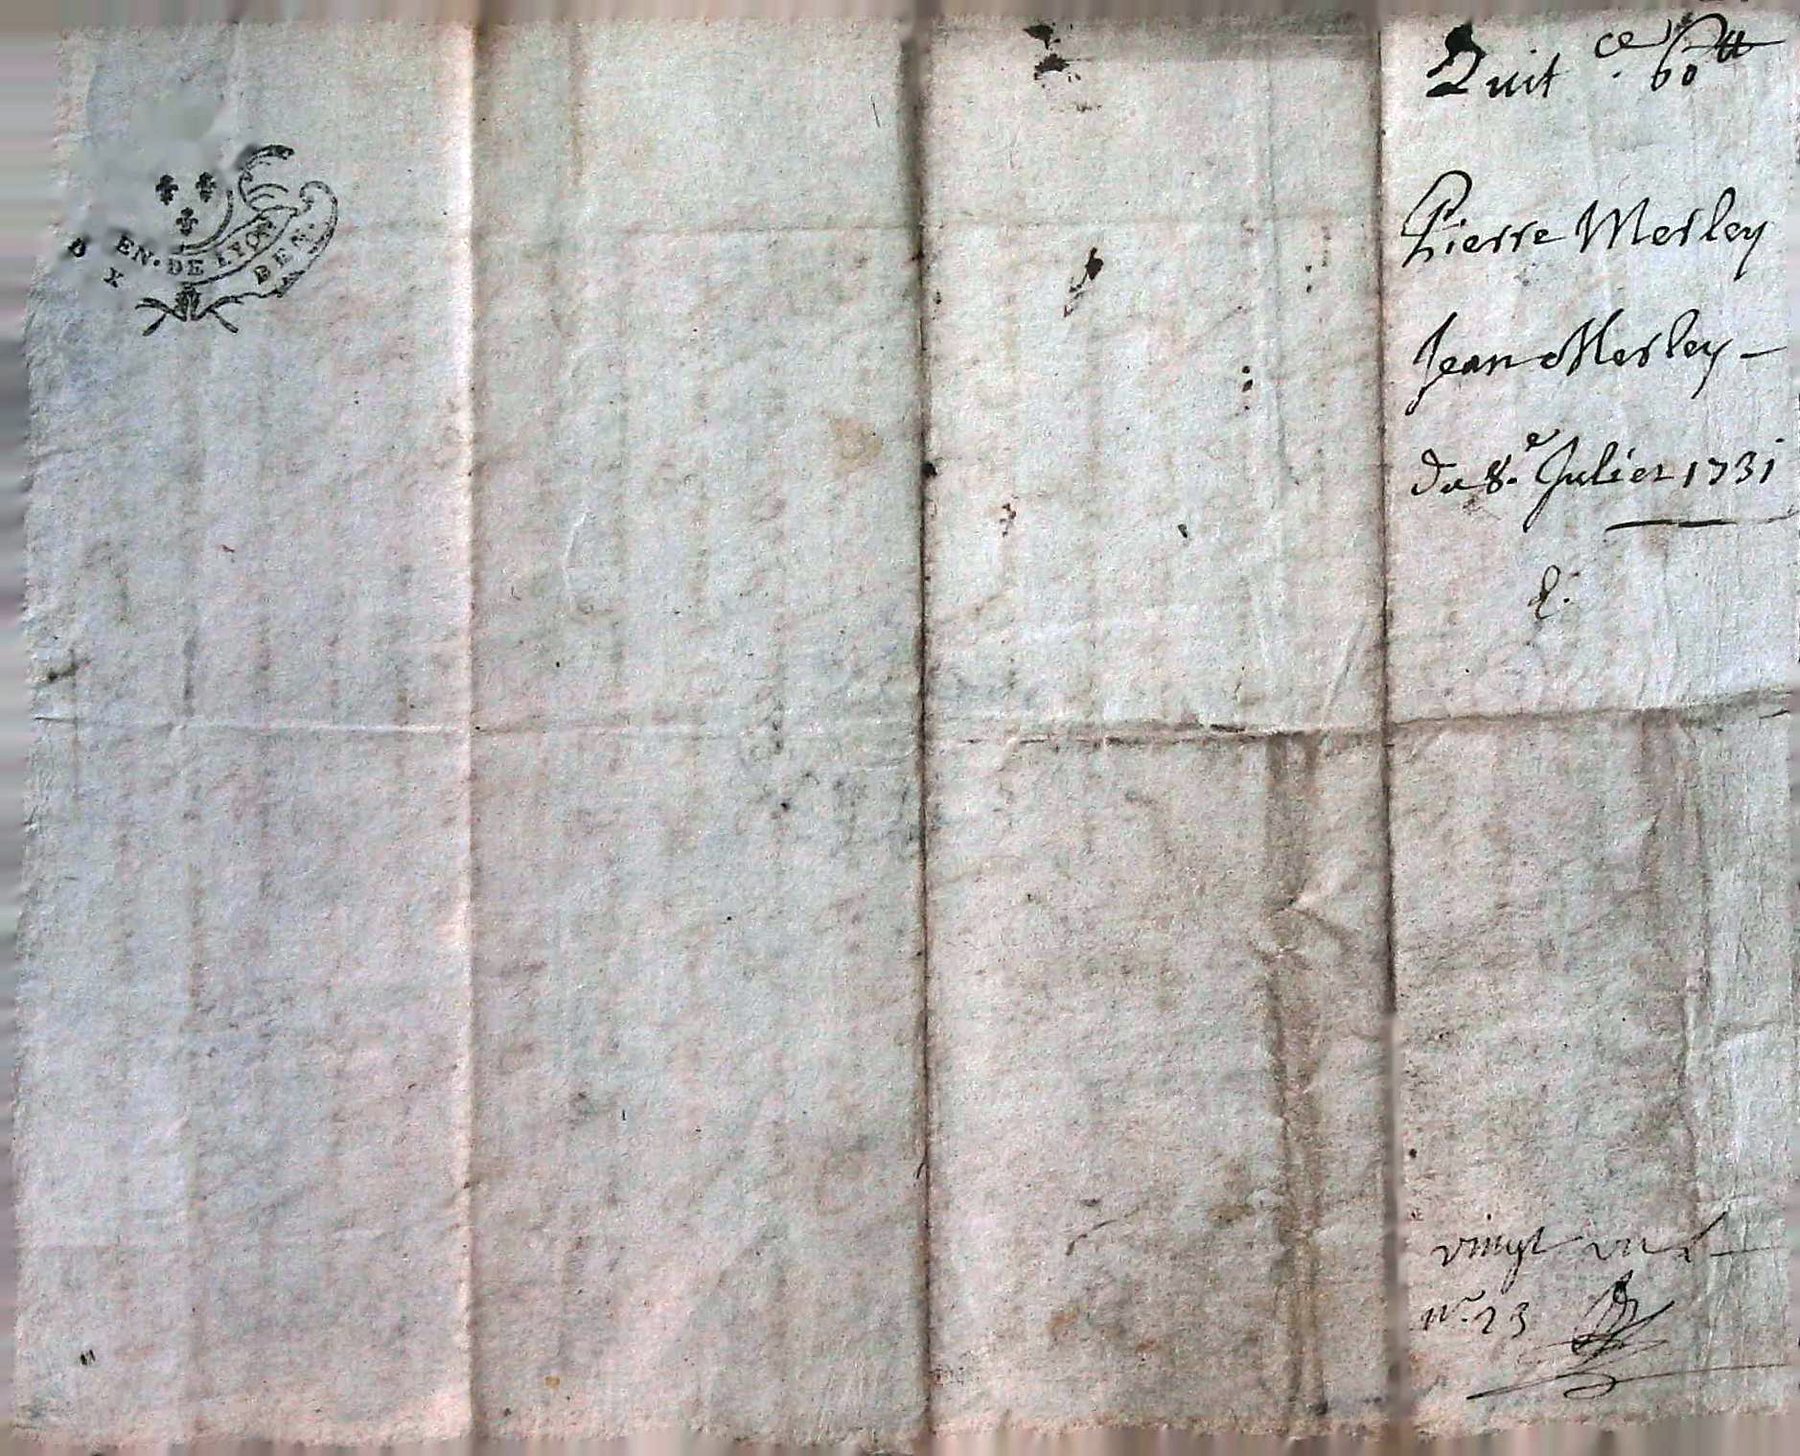 EN. DE LYON
D X DEN.
Quit ce. 60 ₶
Pierre Merley
Jean Merley -
Du 8.e Julier 1731
vingt un
n.o 23